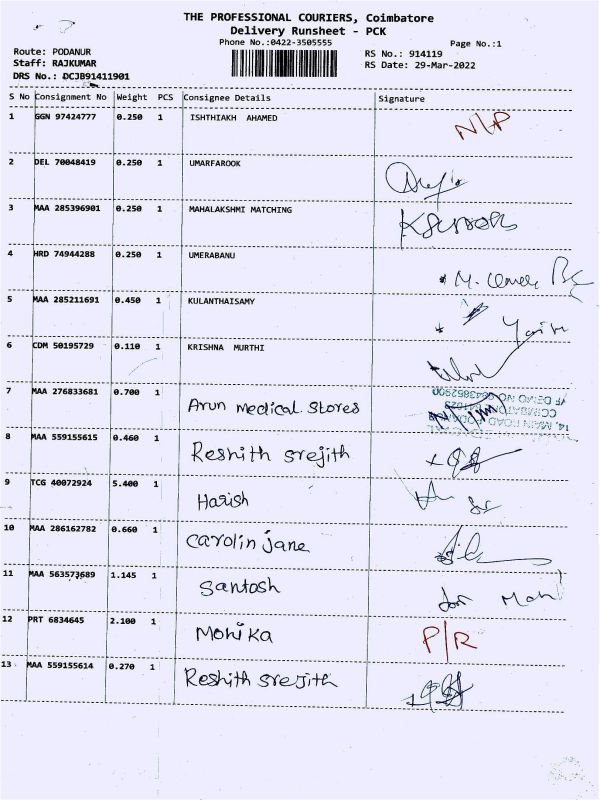 THE PROFESSIONAL COURIERS, Coimbatore
Delivery Runsheet - PCK
Phone No.:0422-3505555
Page No.:1
Route: PODANUR
RS No.: 914119
Staff: RAJKUMAR
RS Date: 29-Mar-2022
DRS No.: DCJB91411901
S No Consignment No Weight PCS Consignee Details Signature
1 GGN 97424777 0.250 1 ISHTHIAKH AHAMED N/P
2 DEL 70048419 0.250 1 UMARFAROOK
3 MAA 285396901 0.250 1 MAHALAKSHMI MATCHING
4 HRD 74944288 0.250 1 UMERABANU
5 MAA 285211691 0.450 1 KULANTHAISAMY
6 CDM 50195729 0.110 1 KRISHNA MURTHI
7 MAA 276833681 0.700 1 Arun medical stores
14, MAIN ROAD
8 MAA 559155615 0.460 1 Reshith srejith
9 TCG 40072924 5.400 1 Harish
10 MAA 286162782 0.660 1 carolin jane
11 MAA 563573689 1.145 1 santosh
12 PRT 6834645 2.100 1 Monika P/R
13 MAA 559155614 0.270 1 Reshith srejith